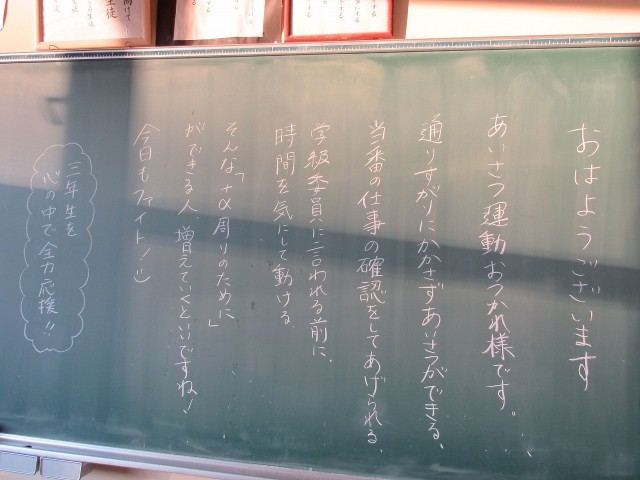 おはようございます
あいさつ運動おつかれ様です。
通りすがりにかかさずあいさつができる、
当番の仕事の確認をしてあげられる、
学級委員に言われる前に、
時間を気にして動ける
そんな「+α周りのために」
ができる人、増えていくといいですね！
今日もファイト！
三年生を
心の中で全力応援！！